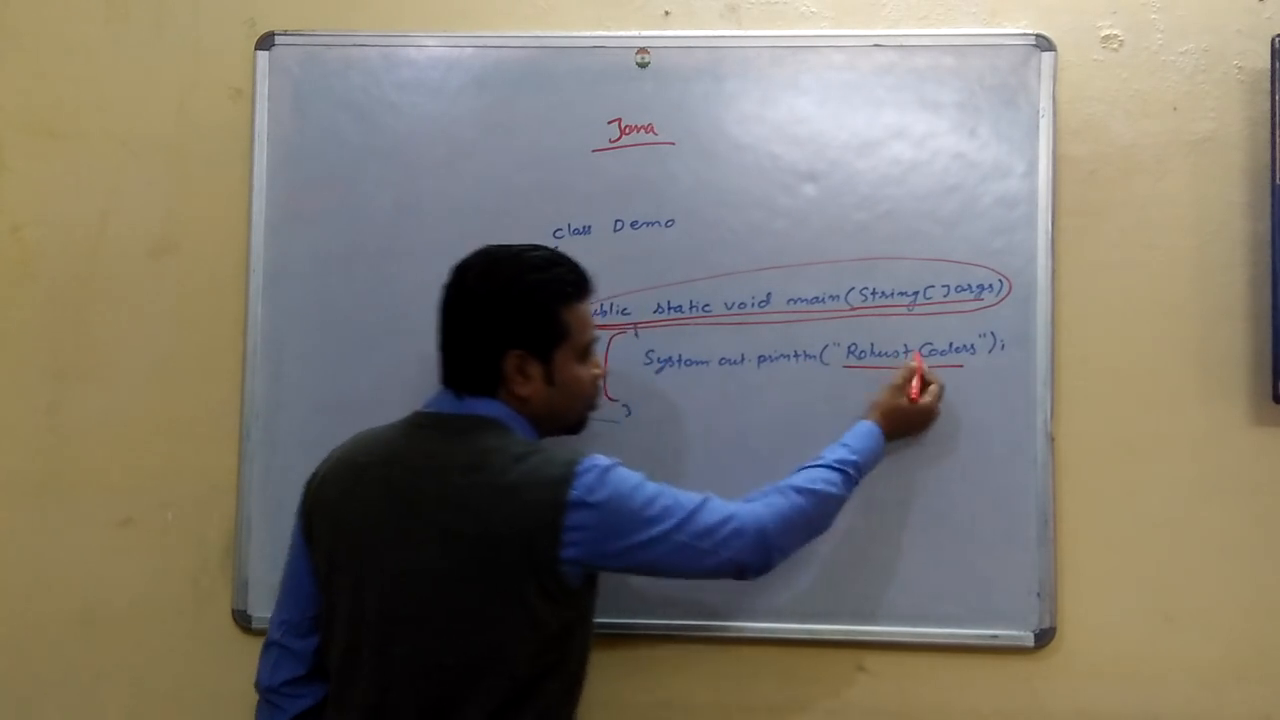 Java
class Demo
{
ublic static void main(String[] args)
{
System.out.println("Robust Coders");
}